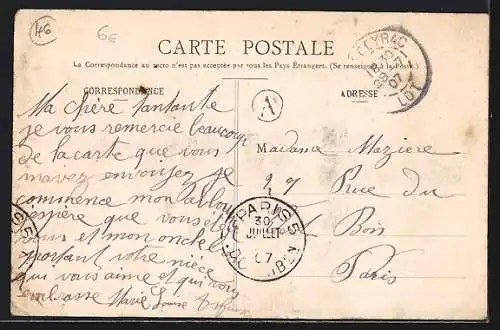 46
6€
CARTE POSTALE
La Correspondance au recto n'est pas acceptée par tous les Pays Étrangers. (Se renseigner à la Poste.)
CORRESPONDANCE
A
ADRESSE
CEYRAC
LOT
Ma chère tantante
je vous remercie beaucoup
de la carte que vous
m'avez envoyez je
commence mon album
j'espère que vous êtes
vous et mon oncle
portant votre nièce
qui vous aime et qui vous
embrasse Marie Louise
Madame Maziere
27 Rue du
Bois
Paris
PARIS 5
30
JUILLET
07